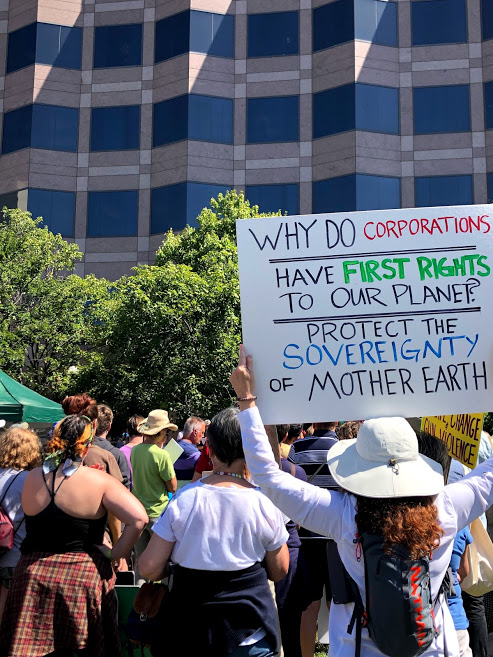 WHY DO CORPORATIONS
HAVE FIRST RIGHTS
TO OUR PLANET?
PROTECT THE
SOVEREIGNTY
OF MOTHER EARTH
CHANGE
VIOLENCE